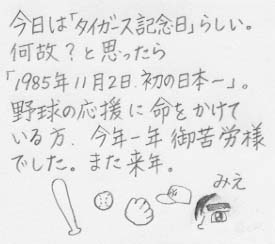 今日は「タイガース記念日」らしい。
何故？と思ったら
「1985年11月2日.初の日本一」。
野球の応援に命をかけて
いる方、今年一年御苦労様
でした。また来年。
みえ